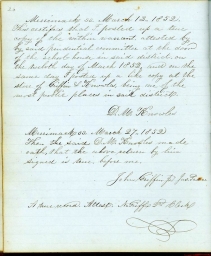 Merrimack ss March 12. 1832.
This certifies that I posted up a true
copy of the within warrant attested by
the said prudential committee at the door
of the school house in said district on
the day of March 1832, and on the
same day I posted up a like copy at the
store of Griffin & Knowles being one of the
most public places in said district.
D. M. Knowles
Merrimack ss March 27. 1832
Then the said D. M. Knowles made
oath that the above return by him
signed is true before me
John Griffin Jus Peace
A true record Attest. N. Griffin Clerk